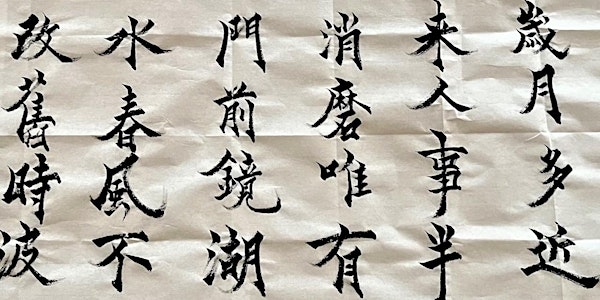 歳月多近
来人事半
消磨唯有
門前鏡湖
水春風不
改舊時波